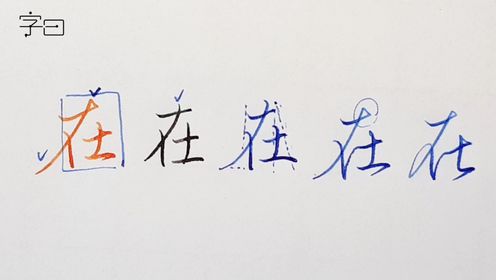 字日
在在在在在